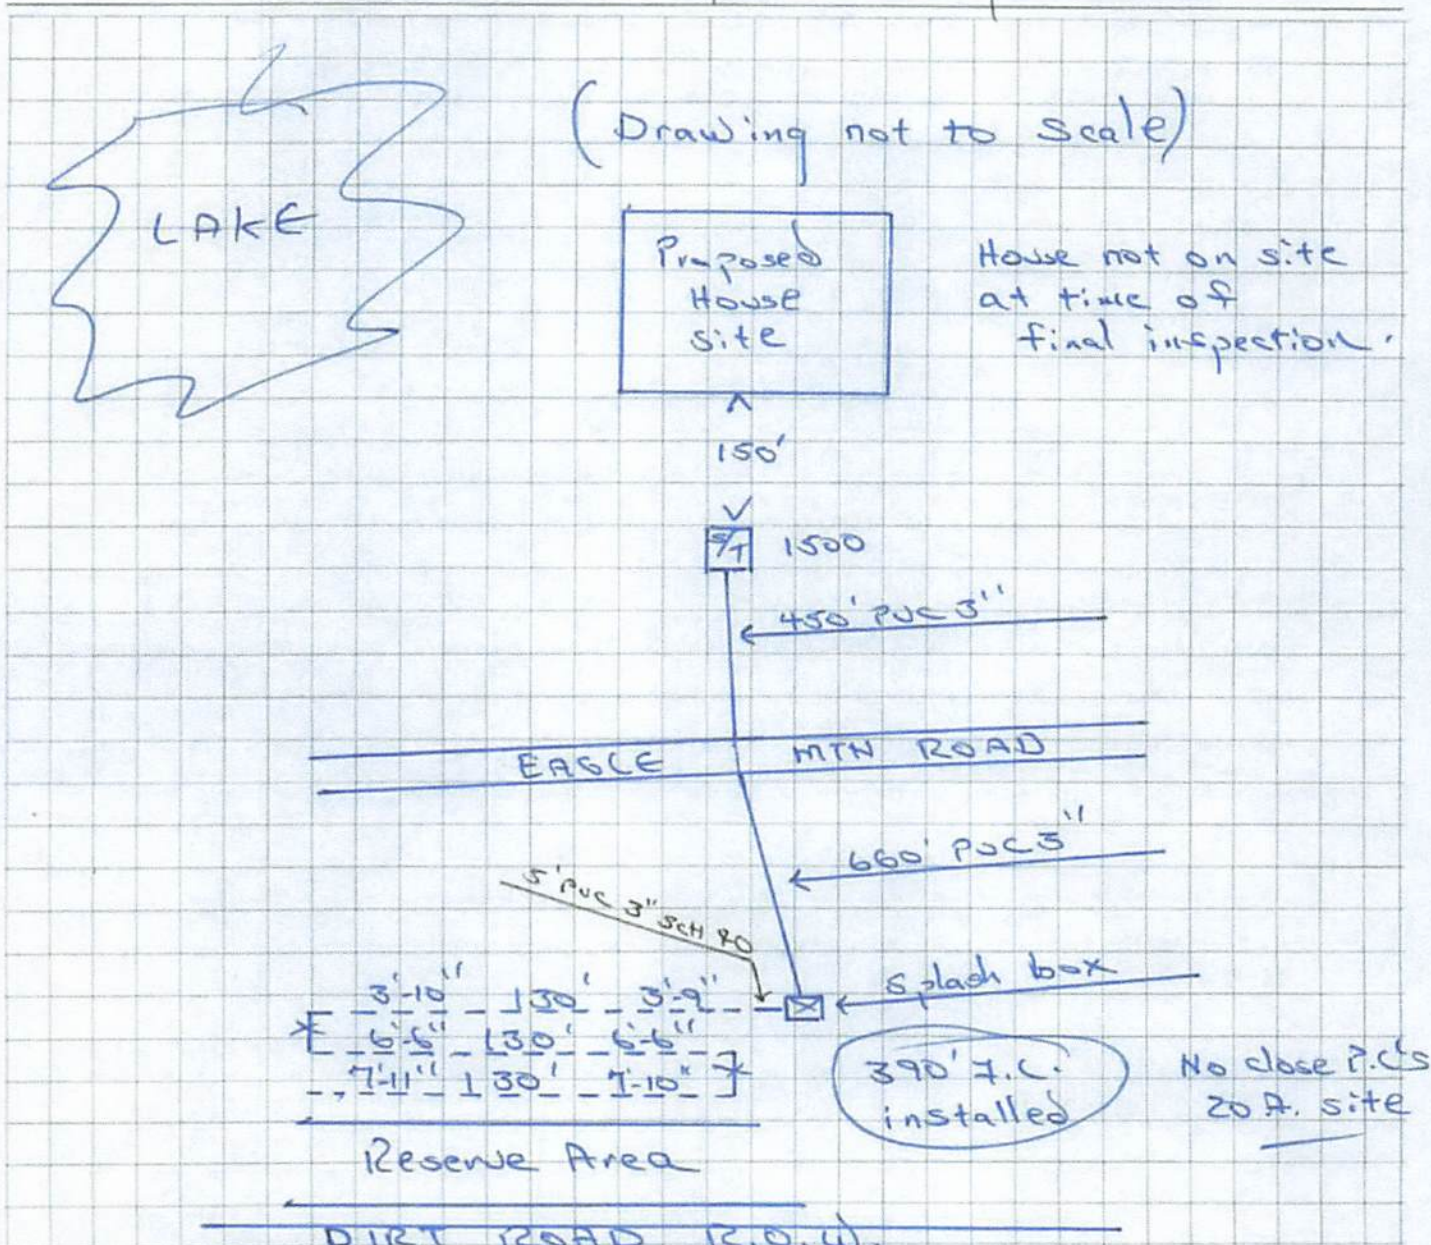 (Drawing not to scale)
LAKE
Proposed
House
site
House not on site
at time of
final inspection.
150'
S/T 1500
450' PVC 3"
EAGLE MTN ROAD
660' PVC 3"
5' PVC 3" SCH 40
Splash box
3'-10" 130' 3'-9"
6'-6" 130' 6'-6"
7'-11" 130' 7'-10"
390' F.C.
installed
No close P.L's
20 A. site
Reserve Area
DIRT ROAD R.O.W.